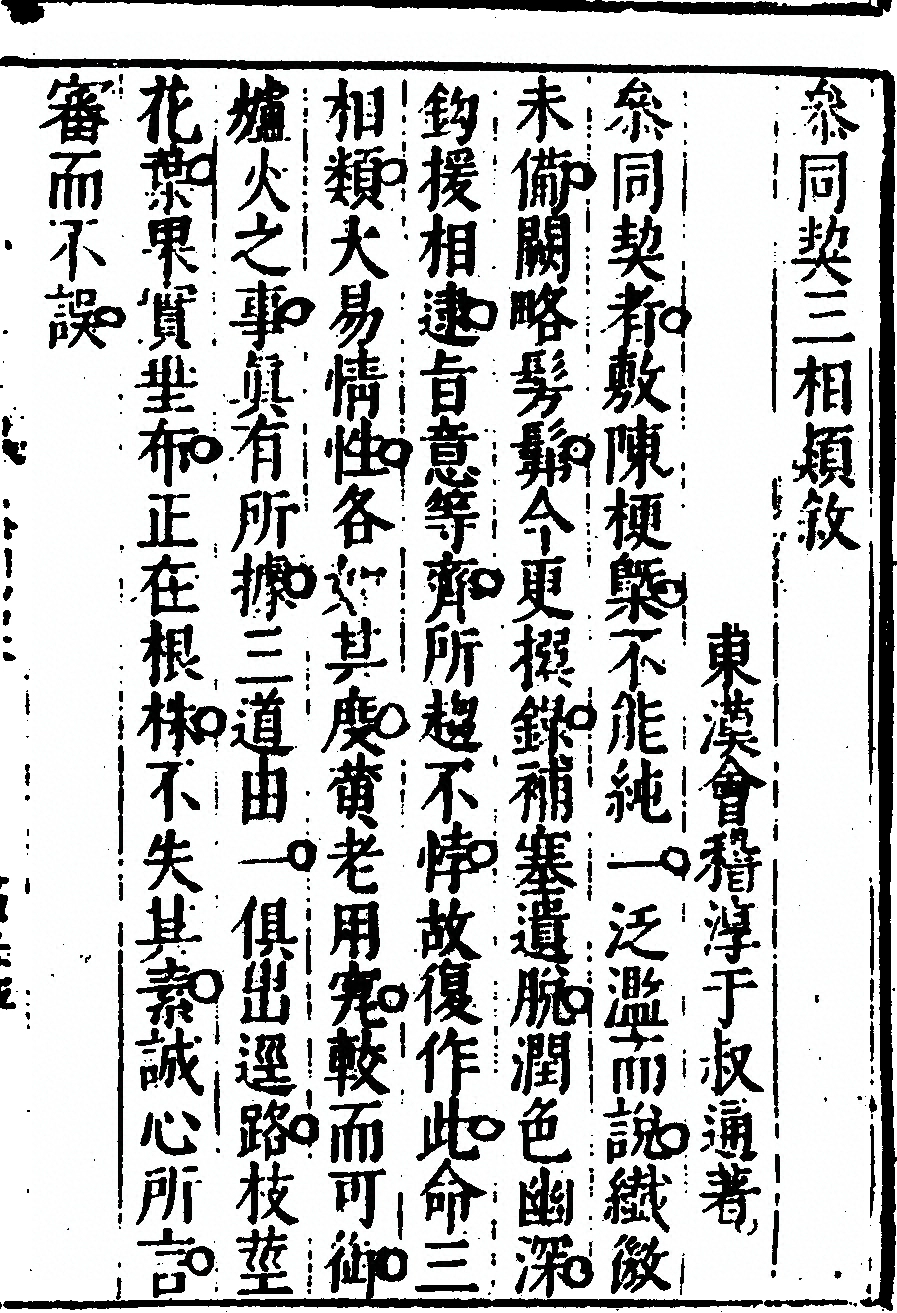 叅同契三相類敘
東漢會稽淳于叔通著
叅同契者敷陳梗槩不能純一泛濫而說纖微
未備闕略髣髴今更撰錄補塞遺脫潤色幽深
鈎援相逮旨意等齊所趨不悖故復作此命三
相類大易情性各如其度黄老用究較而可御
爐火之事眞有所據三道由一俱出逕路枝莖
花葉果實垂布正在根株不失其素誠心所言
審而不誤